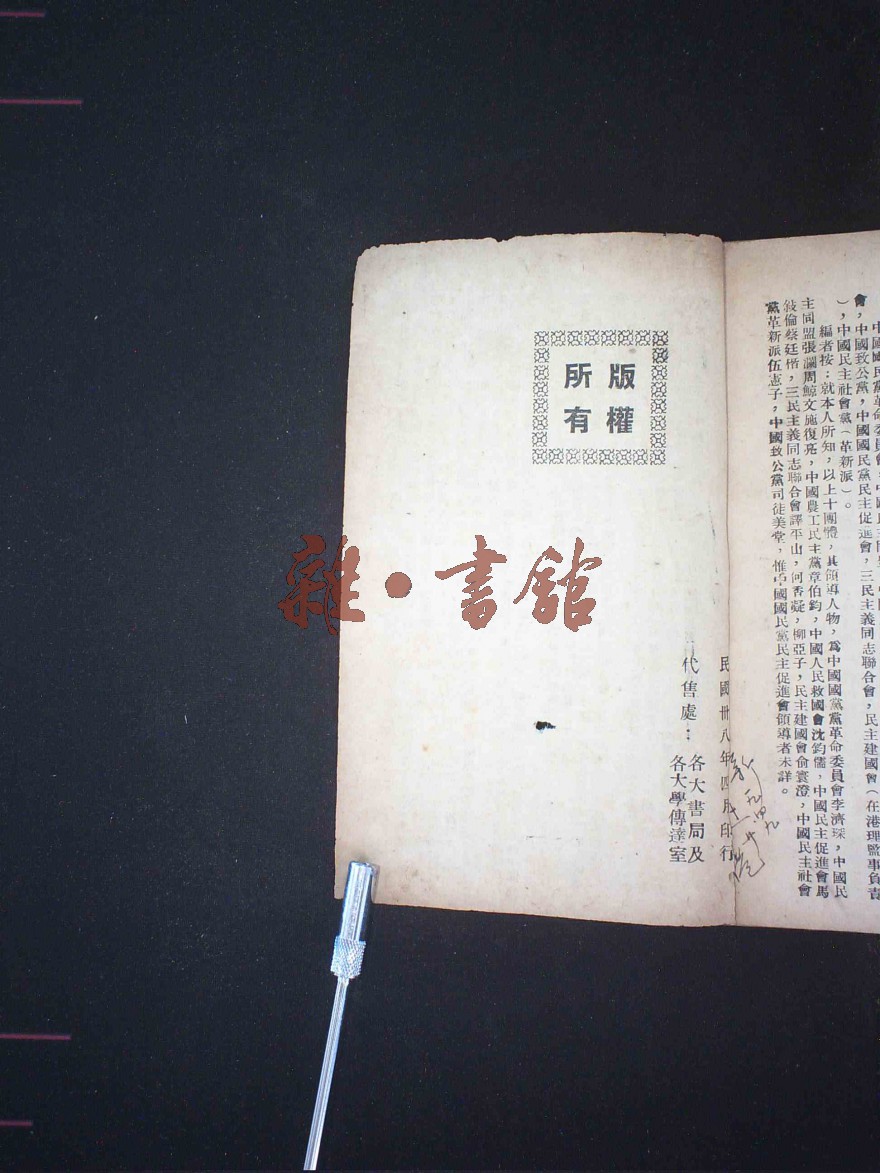 會，中國致公黨，中國國民黨民主促進會，三民主義同志聯合會，民主建國會（在港理監事負責
），中國民主社會黨（革新派）。
編者按：就本人所知，以上十團體，其領導人物，為中國國黨黨革命委員會李濟琛，中國民
主同盟張瀾周鯨文施復亮，中國農工民主黨章伯鈞，中國人民救國會沈鈞儒，中國民主促進會馬
敍倫蔡廷楷，三民主義同志聯合會譚平山，何香凝，柳亞子，民主建國會俞寰澄，中國民主社會
黨革新派伍憲子，中國致公黨司徒美堂，惟中國國民黨民主促進會領導者未詳。
民國卅八年四月印行
代售處：各大書局及
各大學傳達室
版權
所有
雜·書館